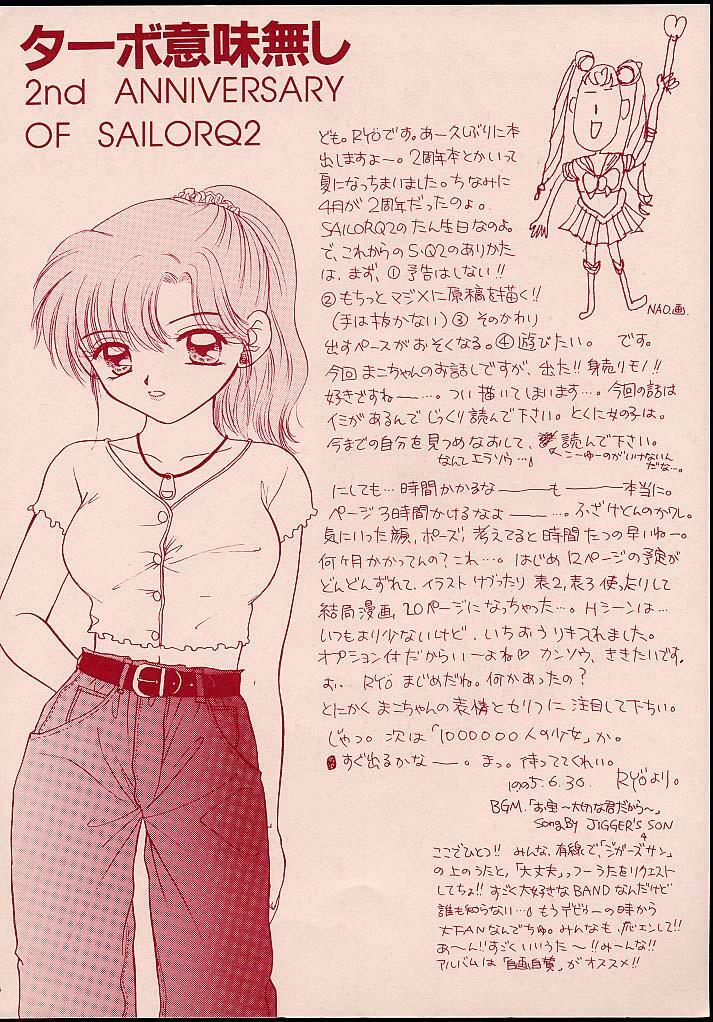 ターボ意味無し
2nd ANNIVERSARY
OF SAILORQ2
ども。RYöです。あー久しぶりに本
出しますよー。2周年本とかいって
夏になっちまいました。ちなみに
4月が2周年だったのよ。
SAILORQ2のたん生日なのよ。
で、これからのS・Q2のありかた
は、まず、①予告はしない!!
②もちっとマジメに原稿を描く!!
(手は抜かない)③そのかわり
出すペースがおそくなる。④遊びたい。です。
NAO.画.
今回まこちゃんのお話しですが、出た!!身売りモノ!!
好きですねー…。つい描いてしまいます…。今回の話は
イミがあるんでじっくり読んで下さい。とくに女の子は。
今までの自分を見つめなおして、読んで下さい。
なんてエラソウ…。
こーゆーのがいけないん
だな…。
にしても…時間かかるな――も――本当に。
ページ3時間かけるなよ――…。ふざけとんのかワレ。
気にいった顔、ポーズ、考えてると時間たつの早いねー。
何ヶ月かかってんの?これ…。はじめ12ページの予定が
どんどんずれて、イラストけずったり表2,表3使ったりして
結局漫画20ページになっちゃった…。Hシーンは…
いつもより少ないけど、いちおうリキ入れました。
オプション付だからい〜よね♡カンソウ、ききたいです。
RYöまじめだね。何かあったの?
とにかくまこちゃんの表情とセリフに注目して下ちい。
じゃっ。次は「1000000人の少女」か。
すぐ出るかな――。まっ。待っててくれい。
1995.6.30. RYöより。
BGM.「お宝〜大切な君だから〜」
Song By JIGGER'S SON
ここでひとつ!!みんな、有線で、「ジガーズサン」
の上のうたと、「大丈夫」っつーうたをリクエスト
してちょ!!すごく大好きなBANDなんだけど
誰も知らない…。もうデビューの時から
大FANなんでちゅ。みんなも、応エンして!!
あ〜ん!!すごくいいうた〜!!み〜んな!!
アルバムは「自画自賛」がオススメ!!